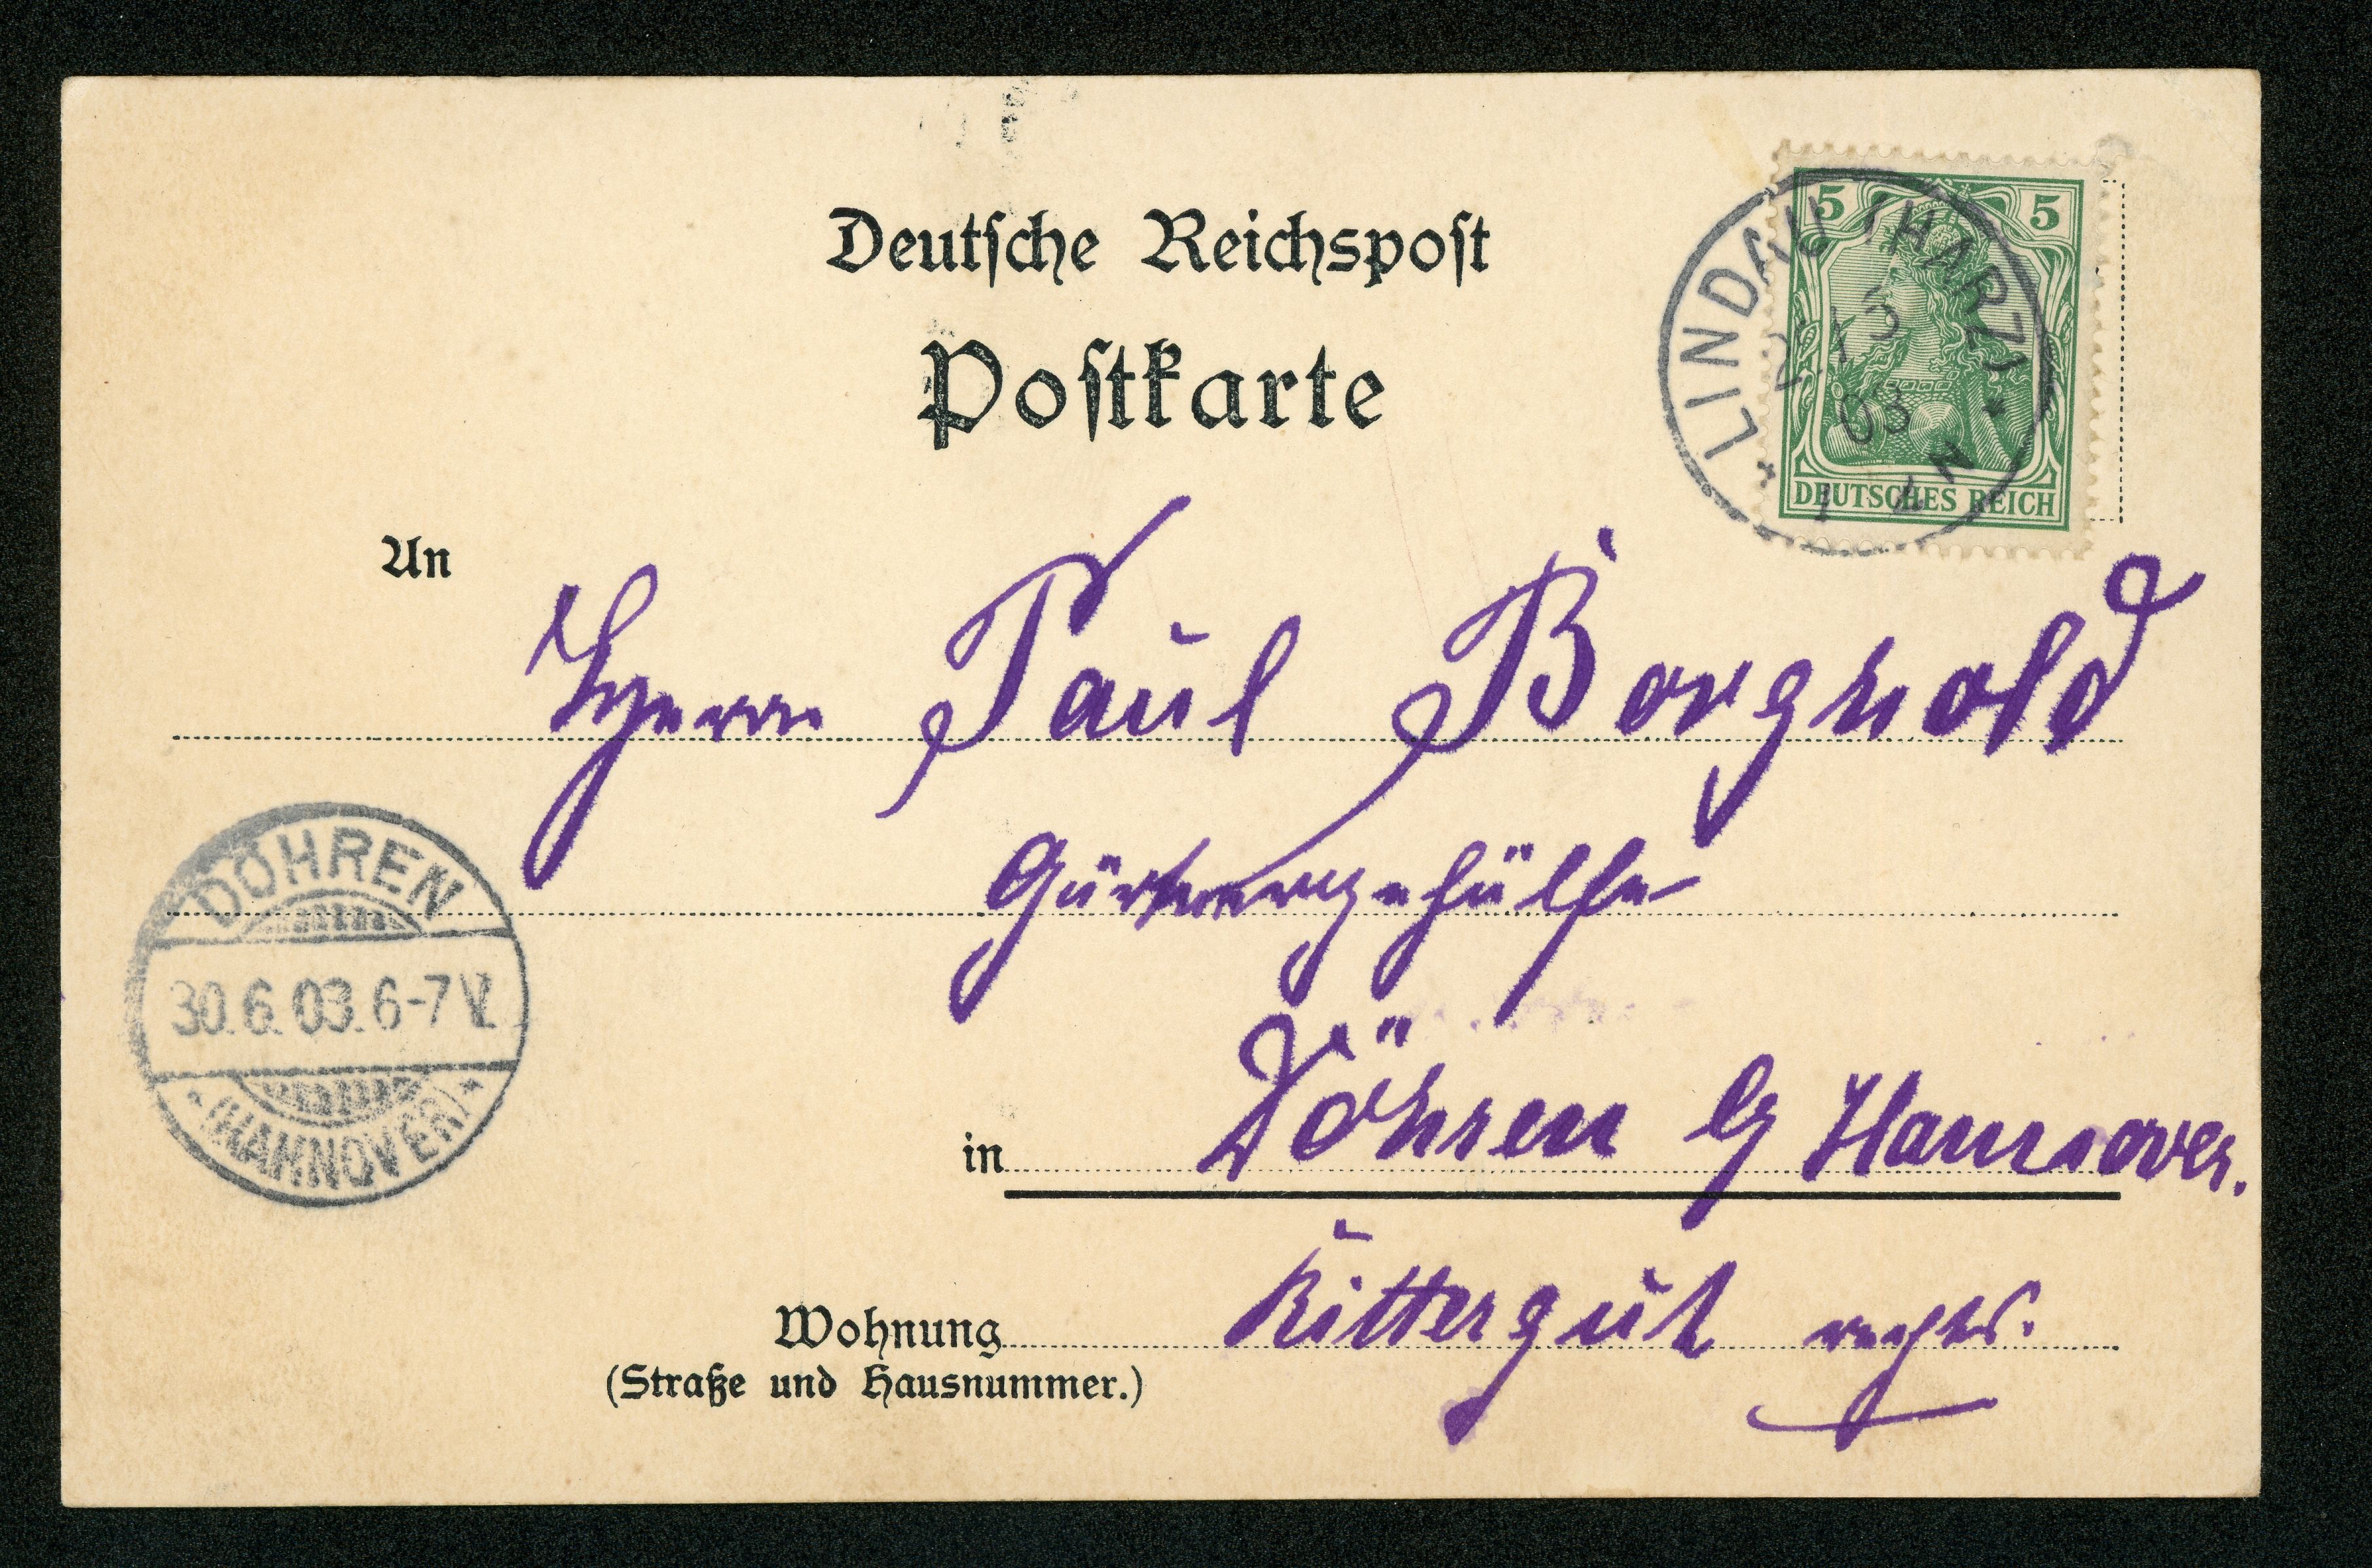 Deutsche Reichspost
Postkarte
5 5
DEUTSCHES REICH
LINDAU (HARZ)
03
1-2 N
An
Herrn Paul Borgwold
Gärtnergehülfe
DÖHREN
30.6.03.6-7V.
(HANNOVER)
in Döhren b/ Hannover.
Wohnung Rittergut
(Straße und Hausnummer.)